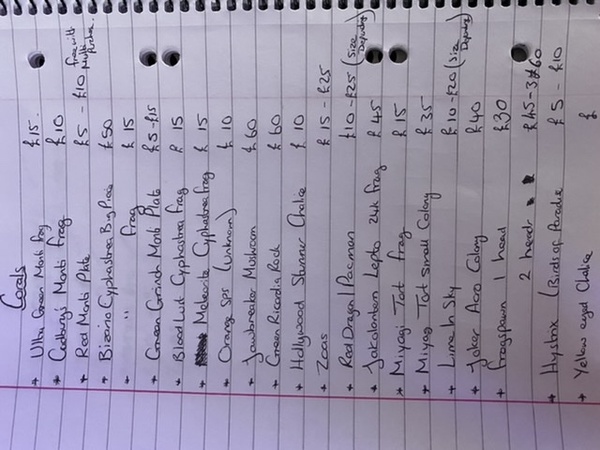 Corals
+ Ultra Green Monti frag £15.
+ Cadbury's Monti Frag £10
+ Red Monti Plate £5 - £10 free with Multi
+ Bizarro Cyphastrea Big Piece £50
+ " frag £15
+ Green Grinch Monti Plate £5-£15
+ Blood Lust Cyphastrea frag £ 15
+ Meteorite Cyphastrea frag £ 15
+ Orange SPS (unknown) £ 10
+ Jawbreaker Mushroom £60
+ Green Ricordia Rock £ 60
+ Hollywood Stunner Chalice £ 10
+ Zoas £ 15 - £25
+ Red Dragon / Pacman £10 - £25 (Size Depending)
+ Lepto 24k frag £ 45
+ Miyagi Tort frag £ 15
+ Miyagi Tort Small Colony £ 35
+ Lime In Sky £ 10 - £20 (Size Depending)
+ Joker Acro Colony £40
+ Frogspawn 1 head £30
2 heads £45 - 3 £60
+ Hystrix (Birds of Paradise) £5 - £10
+ Yellow eyed Chalice £